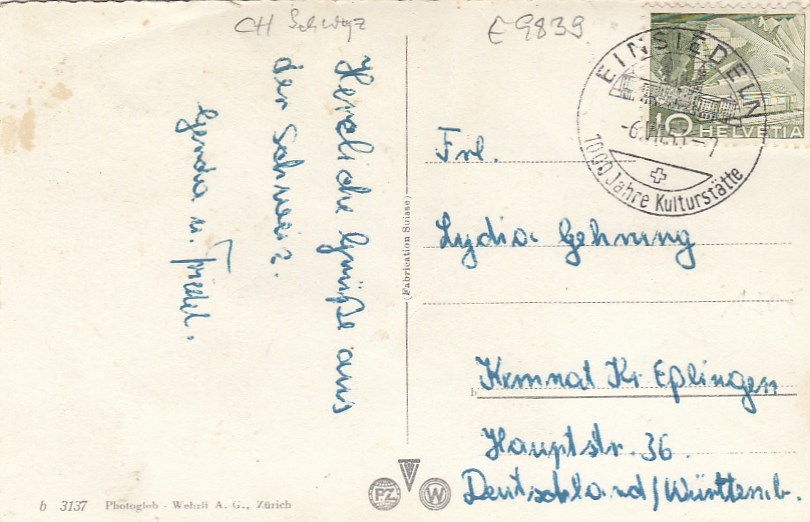 CH Schwyz
E 9839
Herzliche Grüße aus
der Schweiz.
Gerda u. Friedel.
10 HELVETIA
EINSIEDELN
1000 Jahre Kulturstätte
Frl.
Lydia Gehrung
Kemnat Kr. Eßlingen
Hauptstr. 36.
Deutschland/Württemb.
(Fabrication Suisse)
b 3137 Photoglob - Wehrli A. G., Zürich
PZ W